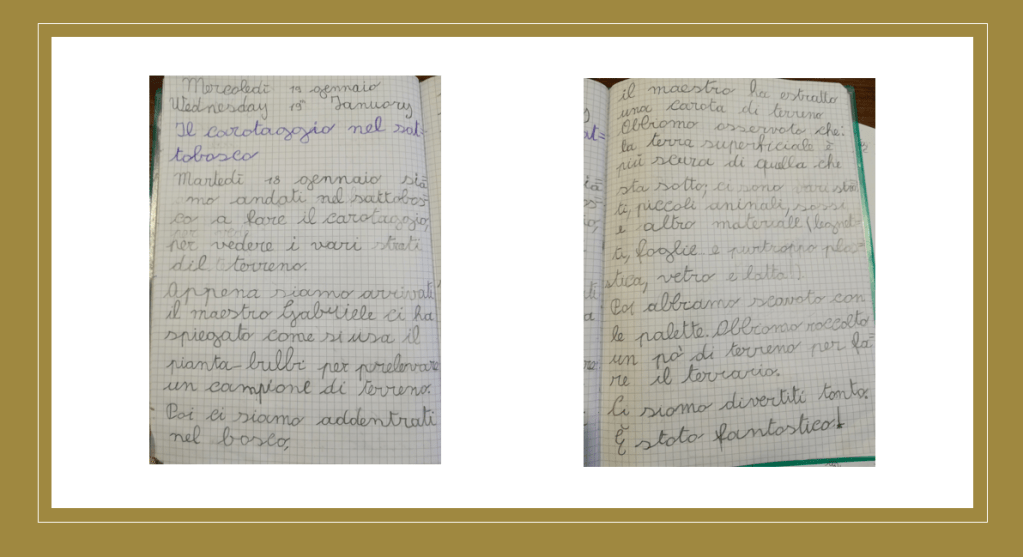 Mercoledì 19 gennaio
Wednesday 19th January
Il carotaggio nel sot-
tobosco
Martedì 18 gennaio sia=
mo andati nel sottobos=
co a fare il carotaggio,
per vedere i vari strati
dil terreno.
Appena siamo arrivati
il maestro Gabriele ci ha
spiegato come si usa il
pianta-bulbi per prelevare
un campione di terreno.
Poi ci siamo addentrati
nel bosco,
il maestro ha estratto
una carota di terreno
Abbiamo osservato che:
la terra superficiale è
più scura di quella che
sta sotto; ci sono vari
ti, piccoli animali, sassi
e altro materiale (legnet=
ti, foglie e purtroppo pla=
stica, vetro e latta).
Poi abbiamo scavato con
le palette. Abbiamo raccolto
un pò di terreno per fa=
re il terrario.
Ci siamo divertiti tanto.
È stato fantastico!